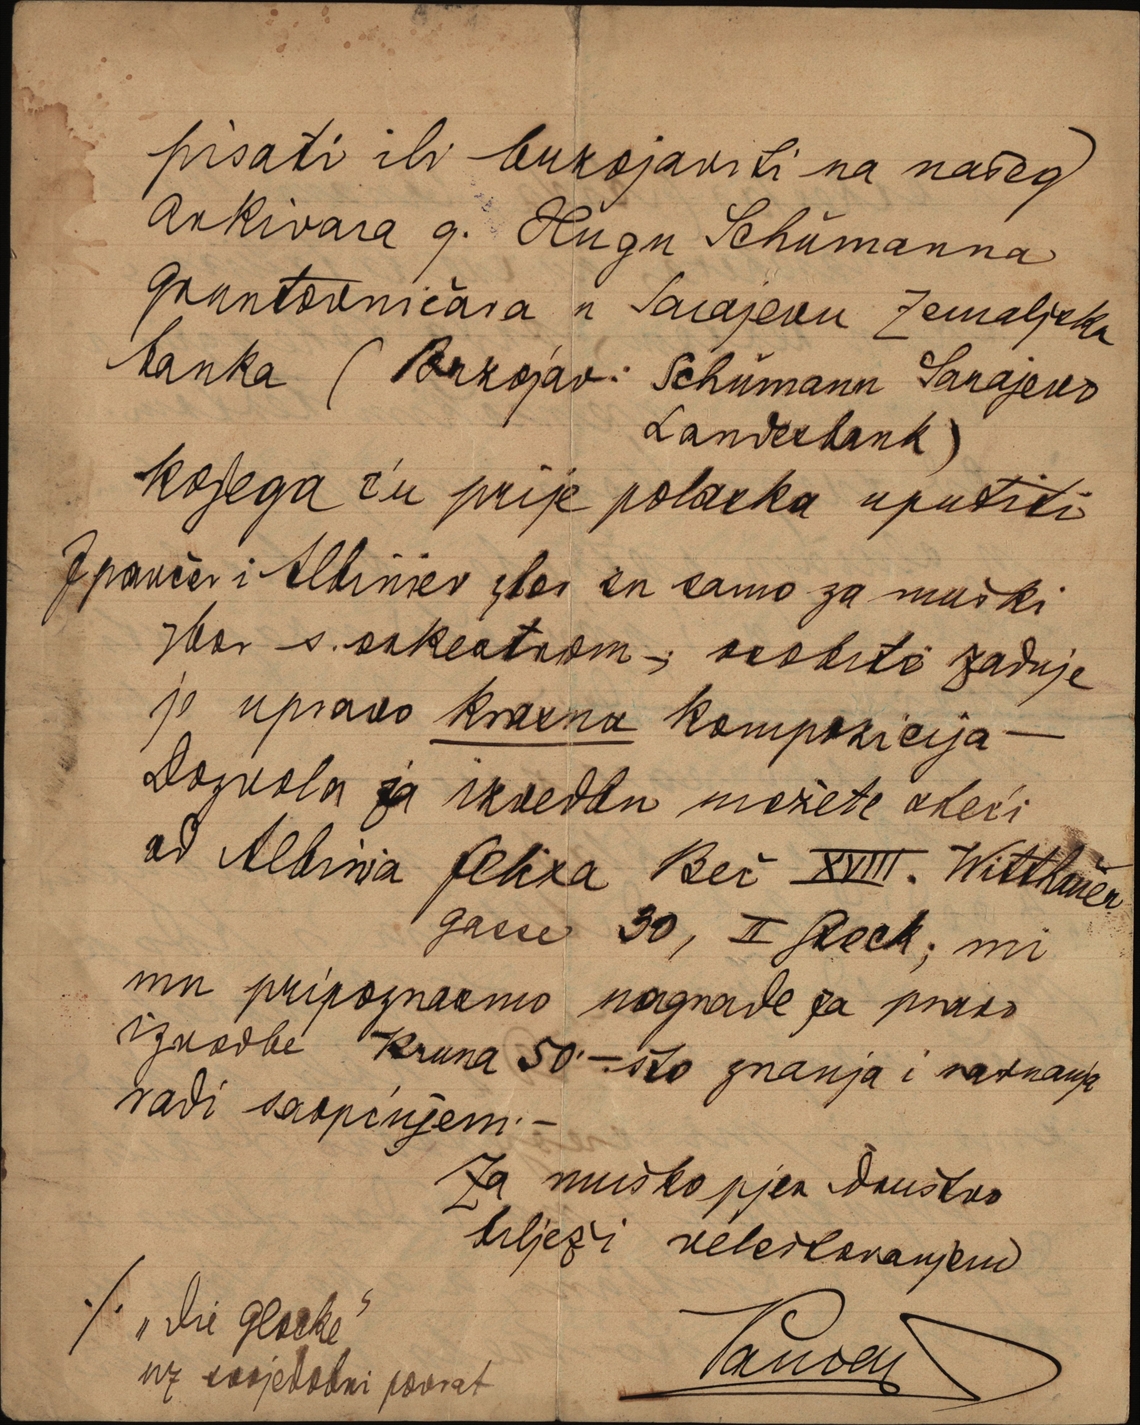 pisati ili burzojaviti na našeg
arkivara g. Hugu Schümanna
gruntovničara u Sarajevu Zemaljska
banka (Burzojav: Schümann Sarajevo
Landesbank)
kojega ću prije polaska uputiti
Ipavčev i Albinijev zbor su samo za muški
zbor s. orkestrom –; osobito zadnje
je upravo krasna kompozicija —
Dozvola za izvedbu možete steći
od Albinia Felixa Beč XVIII. Witthauer
gasse 30, II Stock; mi
mu pripoznasmo nagrade za pravo
izvedbe Kruna 50.– što znanja i ravnanja
radi saopćujem. –
Za muško pjev društvo
bilježi velestovanjem
./. „Die Glocke“
uz svojedobni povrat